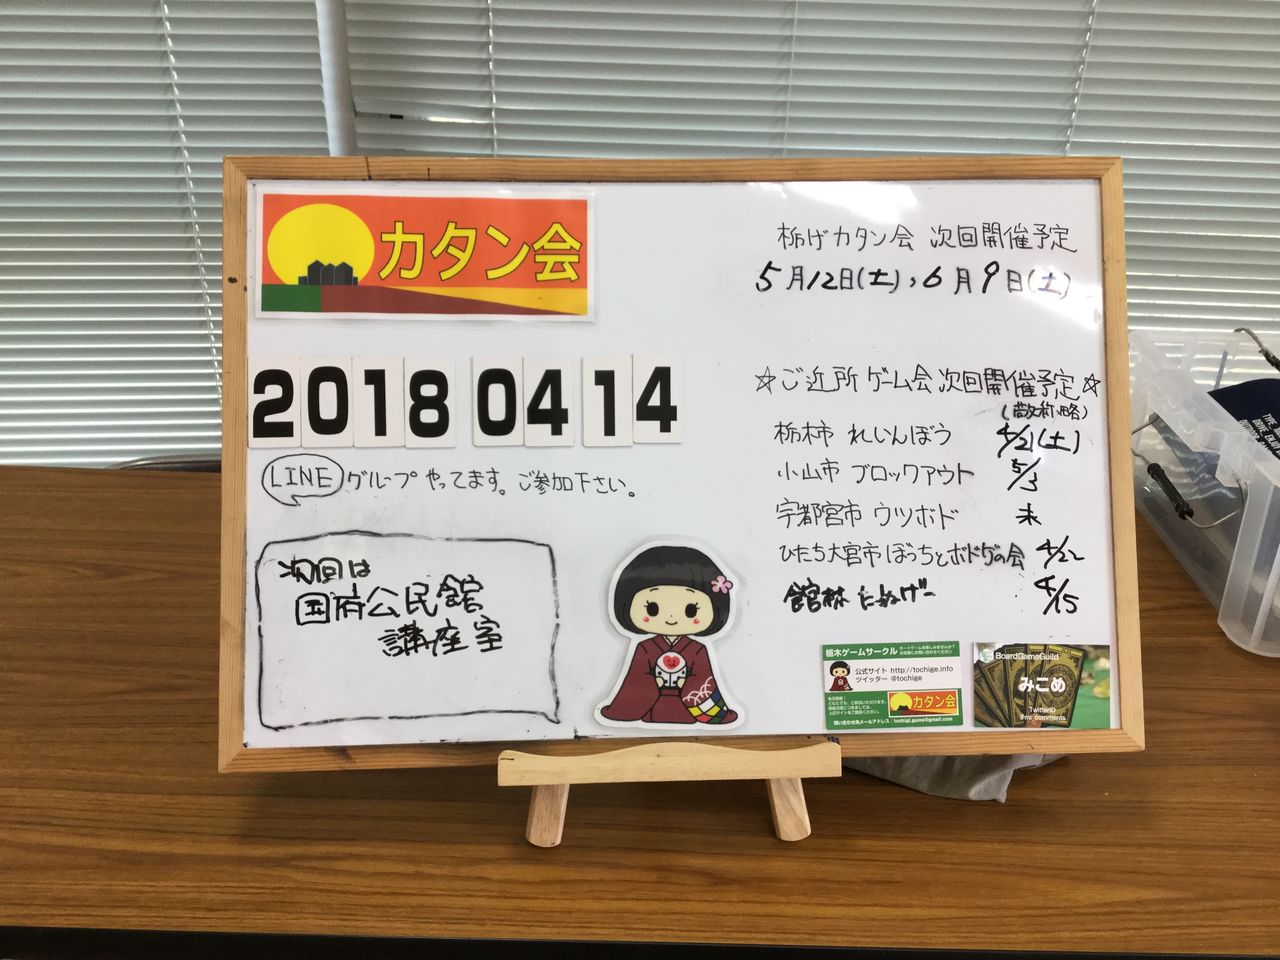 カタン会
2018 04 14
LINE グループやってます。ご参加下さい。
次回は
国府公民館
講座室
栃げカタン会 次回開催予定
5月12日(土),6月9日(土)
☆ご近所ゲーム会次回開催予定☆
(敬称略)
栃木市 れいんぼう 4/21(土)
小山市 ブロックアウト 5/3
宇都宮市 ウツボド 未
ひたち大宮市ぼっちとボドゲの会 4/22
館林 たねげー 4/15
栃木ゲームサークル
公式サイト http://tochige.info
ツイッター @tochige
カタン会
問い合わせ先メールアドレス:tochigi.game@gmail.com
BoardGameGuild
みこめ
TwitterID
@mi_comments